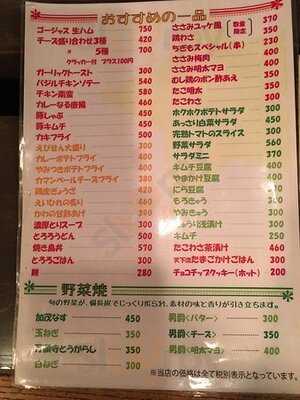 おすすめの一品
ゴージャス 生ハム 750
チーズ盛り合わせ3種 420
〃 5種 700
クラッカー付 プラス100円
ガーリックトースト 300
バジルチキンソテー 540
チキン南蛮 580
カレーなる唐揚 460
豚しゃぶ 450
豚キムチ 450
カキフライ 500
えびせん大盛り 300
カレーポテトフライ 400
やみつきポテトフライ 400
カマンベールチーズフライ 380
鶏皮ぎょうさ 420
えいひれの炙り 300
かわの甘酢あげ 300
濃厚とりスープ 300
とろろうどん 500
焼き鳥丼 570
とろろごはん 300
麺 280
ささみユッケ風 370
数量限定
鶏わさ 350
ちぎもスペシャル(串) 230
ささみ梅肉 400
ささみ明太マヨ 400
むし鶏のポン酢あえ 350
たこ明太 350
たこわさ 300
ホクホクポテトサラダ 300
あっさり白菜サラダ 450
完熟トマトのスライス 300
野菜サラダ 580
サラダミニ 370
キムチ豆腐 300
やまかけ豆腐 300
にら豆腐 300
もろきゅう 300
やみきゅう 300
きゅうり浅漬け 300
キムチ 250
たこわさ茶漬け 460
天下逸たまごかけごはん 360
チョコチップクッキー(ホット) 200
野菜焼
旬の野菜が、備長炭でじっくり炉られ、素材の味と香りが引き立ちます。
加茂なす 450
玉ねぎ 350
万願寺とうがらし 350
白ねぎ 300
男爵〈バター〉 300
男爵〈チーズ〉 350
男爵〈明太マヨ〉 400
※当店の価格は全て税別表示となっています。